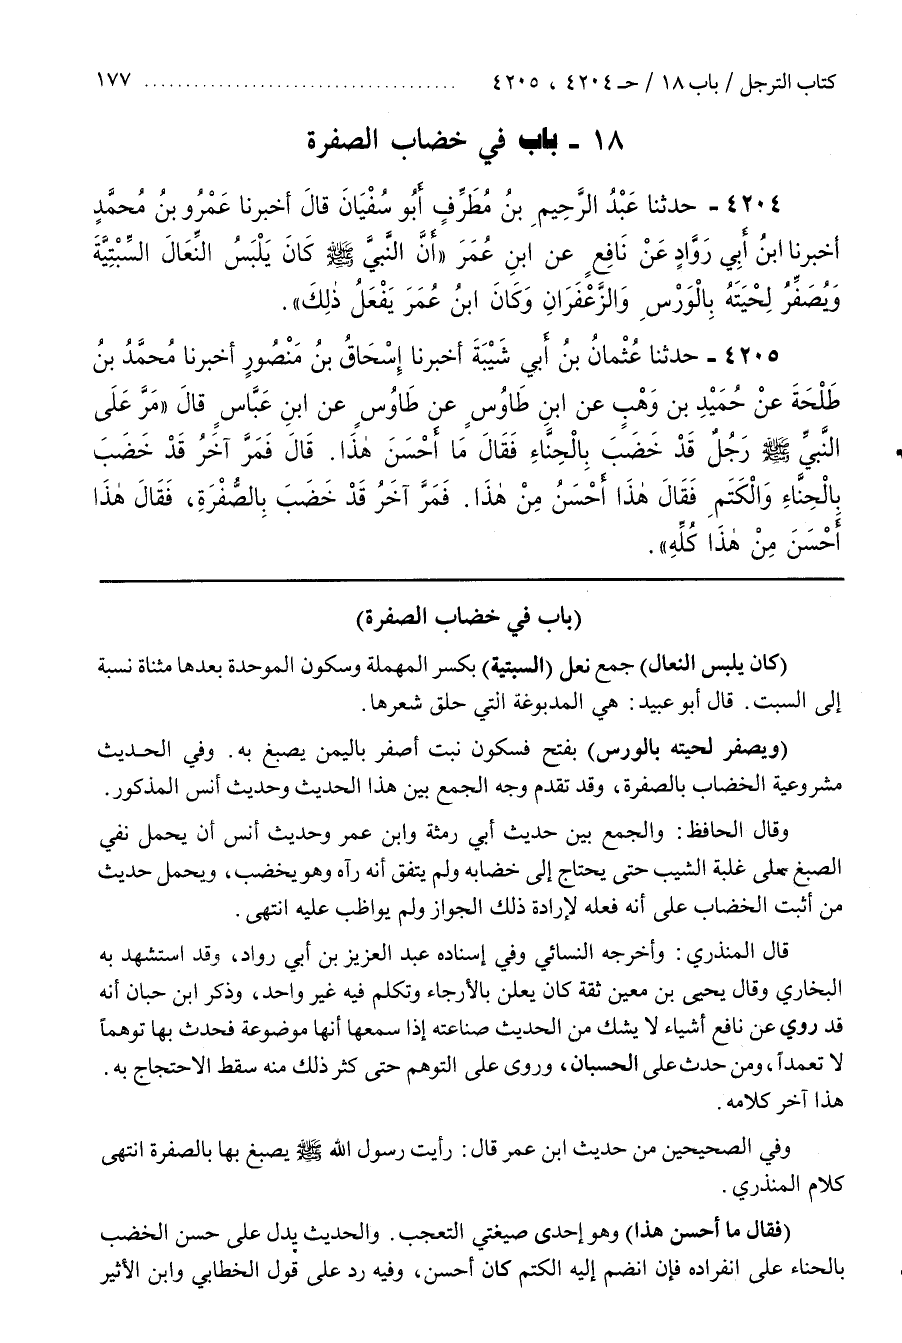 كتاب الترجل / باب ١٨ / حـ ٤٢٠٤ ، ٤٢٠٥ .................................... ١٧٧
١٨ - باب في خضاب الصفرة
٤٢٠٤ - حدثنا عَبْدُ الرَّحِيمِ بنُ مُطَرِّفٍ أَبُو سُفْيَانَ قالَ أخبرنا عَمْرُو بنُ مُحمَّدٍ
أخبرنا ابنُ أَبِي رَوَّادٍ عَنْ نَافِعٍ عن ابنِ عُمَرَ «أَنَّ النَّبِيَّ ﷺ كَانَ يَلْبَسُ النِّعَالَ السِّبْتِيَّةَ
وَيُصَفِّرُ لِحْيَتَهُ بِالْوَرْسِ وَالزَّعْفَرَانِ وَكَانَ ابنُ عُمَرَ يَفْعَلُ ذٰلِكَ».
٤٢٠٥ - حدثنا عُثْمانُ بنُ أَبي شَيْبَةَ أخبرنا إِسْحَاقُ بنُ مَنْصُورٍ أخبرنا مُحمَّدُ بنُ
طَلْحَةَ عنْ حُمَيْدِ بن وَهْبٍ عن ابنِ طَاوُسٍ عن طَاوُسٍ عن ابنِ عَبَّاسٍ قالَ «مَرَّ عَلَى
النَّبيِّ ﷺ رَجُلٌ قَدْ خَضَبَ بِالْحِنَّاءِ فَقَالَ مَا أَحْسَنَ هٰذَا. قَالَ فَمَرَّ آخَرُ قَدْ خَضَبَ
بِالْحِنَّاءِ وَالْكَتَمِ فَقَالَ هٰذَا أَحْسَنُ مِنْ هٰذَا. فَمَرَّ آخَرُ قَدْ خَضَبَ بِالصُّفْرَةِ، فَقَالَ هٰذَا
أَحْسَنَ مِنْ هٰذَا كُلِّهِ».
(باب في خضاب الصفرة)
(كان يلبس النعال) جمع نعل (السبتية) بكسر المهملة وسكون الموحدة بعدها مثناة نسبة
إلى السبت. قال أبو عبيد: هي المدبوغة التي حلق شعرها.
(ويصفر لحيته بالورس) بفتح فسكون نبت أصفر باليمن يصبغ به. وفي الحديث
مشروعية الخضاب بالصفرة، وقد تقدم وجه الجمع بين هذا الحديث وحديث أنس المذكور.
وقال الحافظ: والجمع بين حديث أبي رمثة وابن عمر وحديث أنس أن يحمل نفي
الصبغ على غلبة الشيب حتى يحتاج إلى خضابه ولم يتفق أنه رآه وهو يخضب، ويحمل حديث
من أثبت الخضاب على أنه فعله لإرادة ذلك الجواز ولم يواظب عليه انتهى.
قال المنذري: وأخرجه النسائي وفي إسناده عبد العزيز بن أبي رواد، وقد استشهد به
البخاري وقال يحيى بن معين ثقة كان يعلن بالأرجاء وتكلم فيه غير واحد، وذكر ابن حبان أنه
قد روي عن نافع أشياء لا يشك من الحديث صناعته إذا سمعها أنها موضوعة فحدث بها توهماً
لا تعمداً، ومن حدث على الحسبان، وروى على التوهم حتى كثر ذلك منه سقط الاحتجاج به.
هذا آخر كلامه.
وفي الصحيحين من حديث ابن عمر قال: رأيت رسول الله ﷺ يصبغ بها بالصفرة انتهى
كلام المنذري.
(فقال ما أحسن هذا) وهو إحدى صيغتي التعجب. والحديث يدل على حسن الخضب
بالحناء على انفراده فإن انضم إليه الكتم كان أحسن، وفيه رد على قول الخطابي وابن الأثير